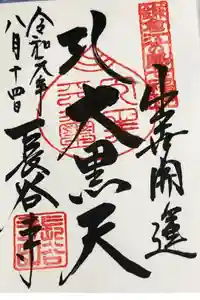 出世開運
大黒天
令和元年
八月十四日
長谷寺